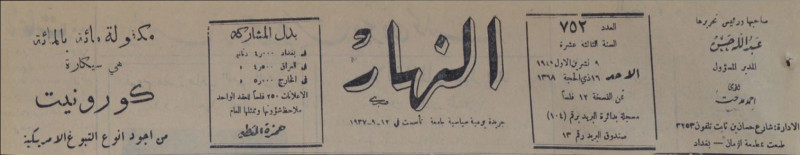 صاحبها ورئيس تحريرها
عبدالله حسن
المدير المسؤول
العدد ٧٥٢
السنة الثالثة عشرة
٩ تشرين الاول ١٩٤٩
الاحد ١٦ ذي الحجة ١٣٦٨
ثمن النسخة ١٢ فلساً
مسجلة بدائرة البريد برقم (١٠٤)
صندوق البريد رقم ١٣
الادارة: شارع حسان بن ثابت تلفون ٣٢٥٣
طبعت بمطبعة الزمان — بغداد
النهار
جريدة يومية سياسية جامعة تأسست في ١٢-٩-١٩٣٧
بدل المشاركة
في بغداد ٤٠٠٠
في العراق ٤٥٠٠
في الخارج ٥٠٠٠
الاعلانات ٢٥٠ فلساً للعقد الواحد
ملاحظ شؤونها وممثلها العام
مكفولة مائة بالمائة
هي سيكارة
كورونيت
من اجود انوع التبوغ الامريكية